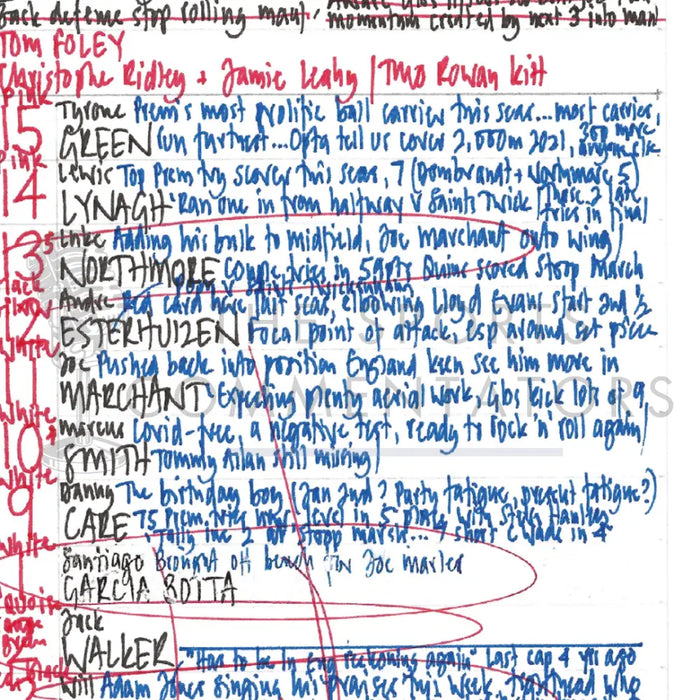 Back defence stop rolling maul,
momentum created by next 3 into maul
TOM FOLEY
Christophe Ridley + Jamie Leahy | TMO Rowan Kitt
Pink
15
Tyrone Prem's most prolific ball carrier this seas... most carries,
GREEN run furthest... Opta tell us cover 2,000m 2021, 300 more anyone else
Pink
14
Lewis Top Prem try scorer this seas, 7 (Dombrandt + Northmore 5)
LYNAGH Ran one in from halfway v Saints Twick | Those 2 tries in final
13
Luke Adding his bulk to midfield, Joe Marchant onto wing)
NORTHMORE Couple tries in 59pts Quins scored Stoop March
Andre Red card here last seas, elbowing Lloyd Evans start 2nd ½
12
ESTERHUIZEN Focal point of attack, esp around set piece
White
11
Joe Pushed back into position England keen see him more in
MARCHANT Expecting plenty aerial work, Glos kick lots of 9
White
10
Marcus Covid-free, a negative test, ready to rock 'n' roll again)
SMITH Tommy Allan still missing)
White
9
Danny The birthday boy (Jan 2nd ? Party fatigue, present fatigue?)
CARE 75 Prem tries level in 5 place with Steve Hanley
2 at Stoop March... short Wade in 4
White
1
Santiago Brought off bench for Joe Marler
GARCIA BOTTA
2
Jack
WALKER "Has to be in Eng reckoning again" last cap 4 yrs ago
Will Adam Jones singing his praises this week, tighthead who
THE SPORTS
COMMENTATORS